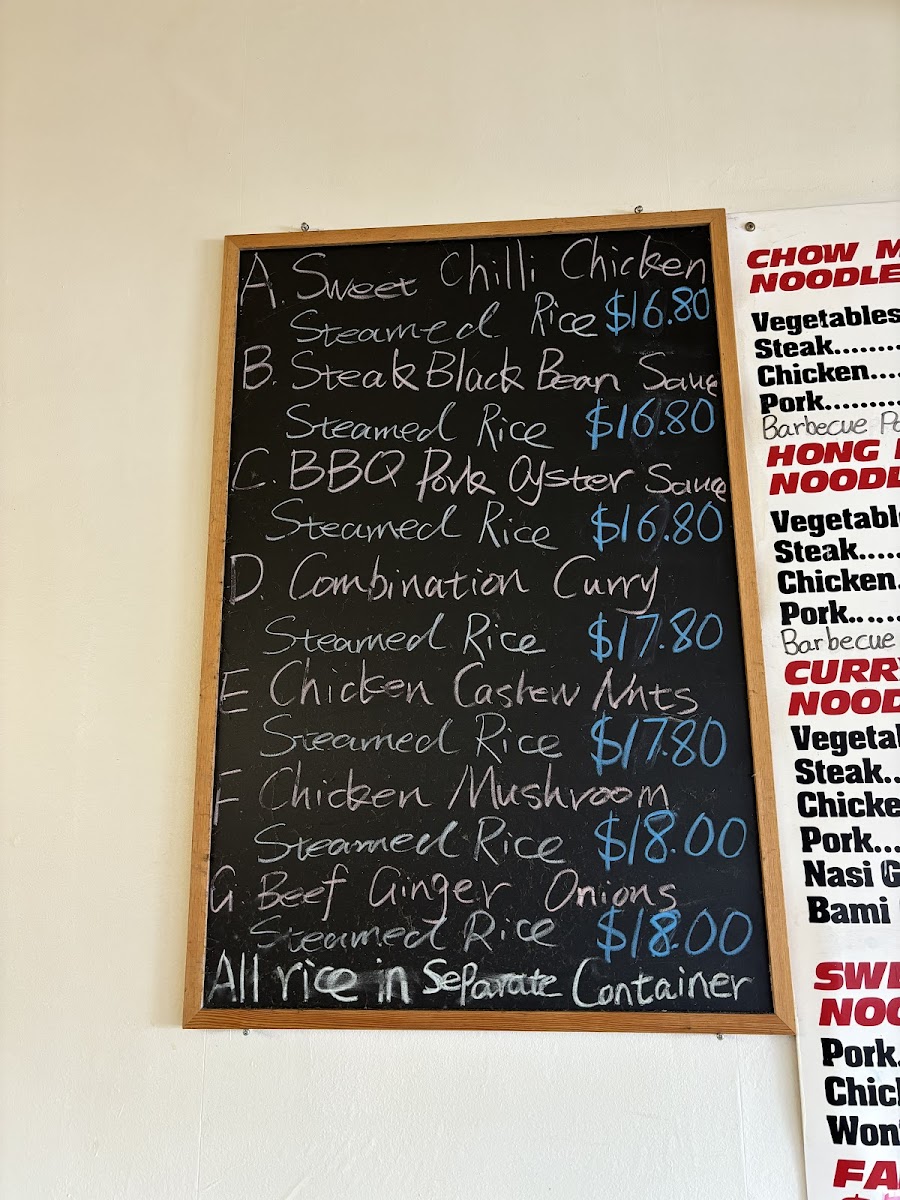 A. Sweet Chilli Chicken
Steamed Rice $16.80
B. Steak Black Bean Sauce
Steamed Rice $16.80
C. BBQ Pork Oyster Sauce
Steamed Rice $16.80
D. Combination Curry
Steamed Rice $17.80
E Chicken Cashew Nuts
Steamed Rice $17.80
F Chicken Mushroom
Steamed Rice $18.00
G. Beef Ginger Onions
Steamed Rice $18.00
All rice in Separate Container
CHOW M
NOODLE
Vegetables
Steak........
Chicken....
Pork.........
Barbecue Po
HONG
NOODL
Vegetabl
Steak.....
Chicken.
Pork......
Barbecue
CURRY
NOOD
Vegetal
Steak..
Chicke
Pork...
Nasi G
Bami
SWE
NOO
Pork.
Chic
Won
FA